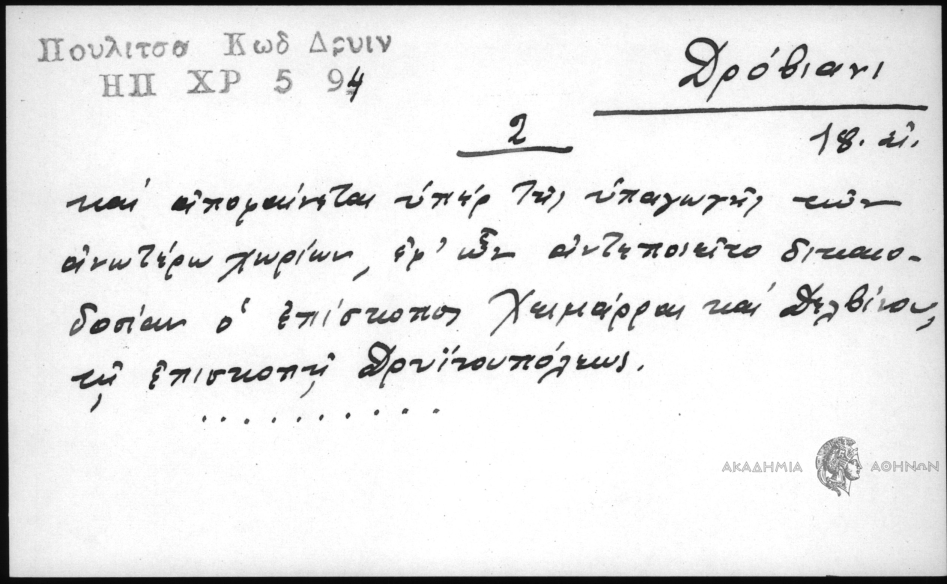 Πουλιτσα Κωδ Δρυιν
ΗΠ ΧΡ 5 94
Δρόβιανι
2
18. αἰ.
καί ἀποφαίνεται ὑπέρ τῆς ὑπαγωγῆς τῶν
ἀνωτέρω χωρίων, ἐφ' ὧν ἀντεποιεῖτο δικαιο-
δοσίαν ὁ ἐπίσκοπος Χειμάρρας καί Δελβίνου,
τῇ ἐπισκοπῇ Δρυϊνουπόλεως.
...........
ΑΚΑΔΗΜΙΑ ΑΘΗΝΩΝ